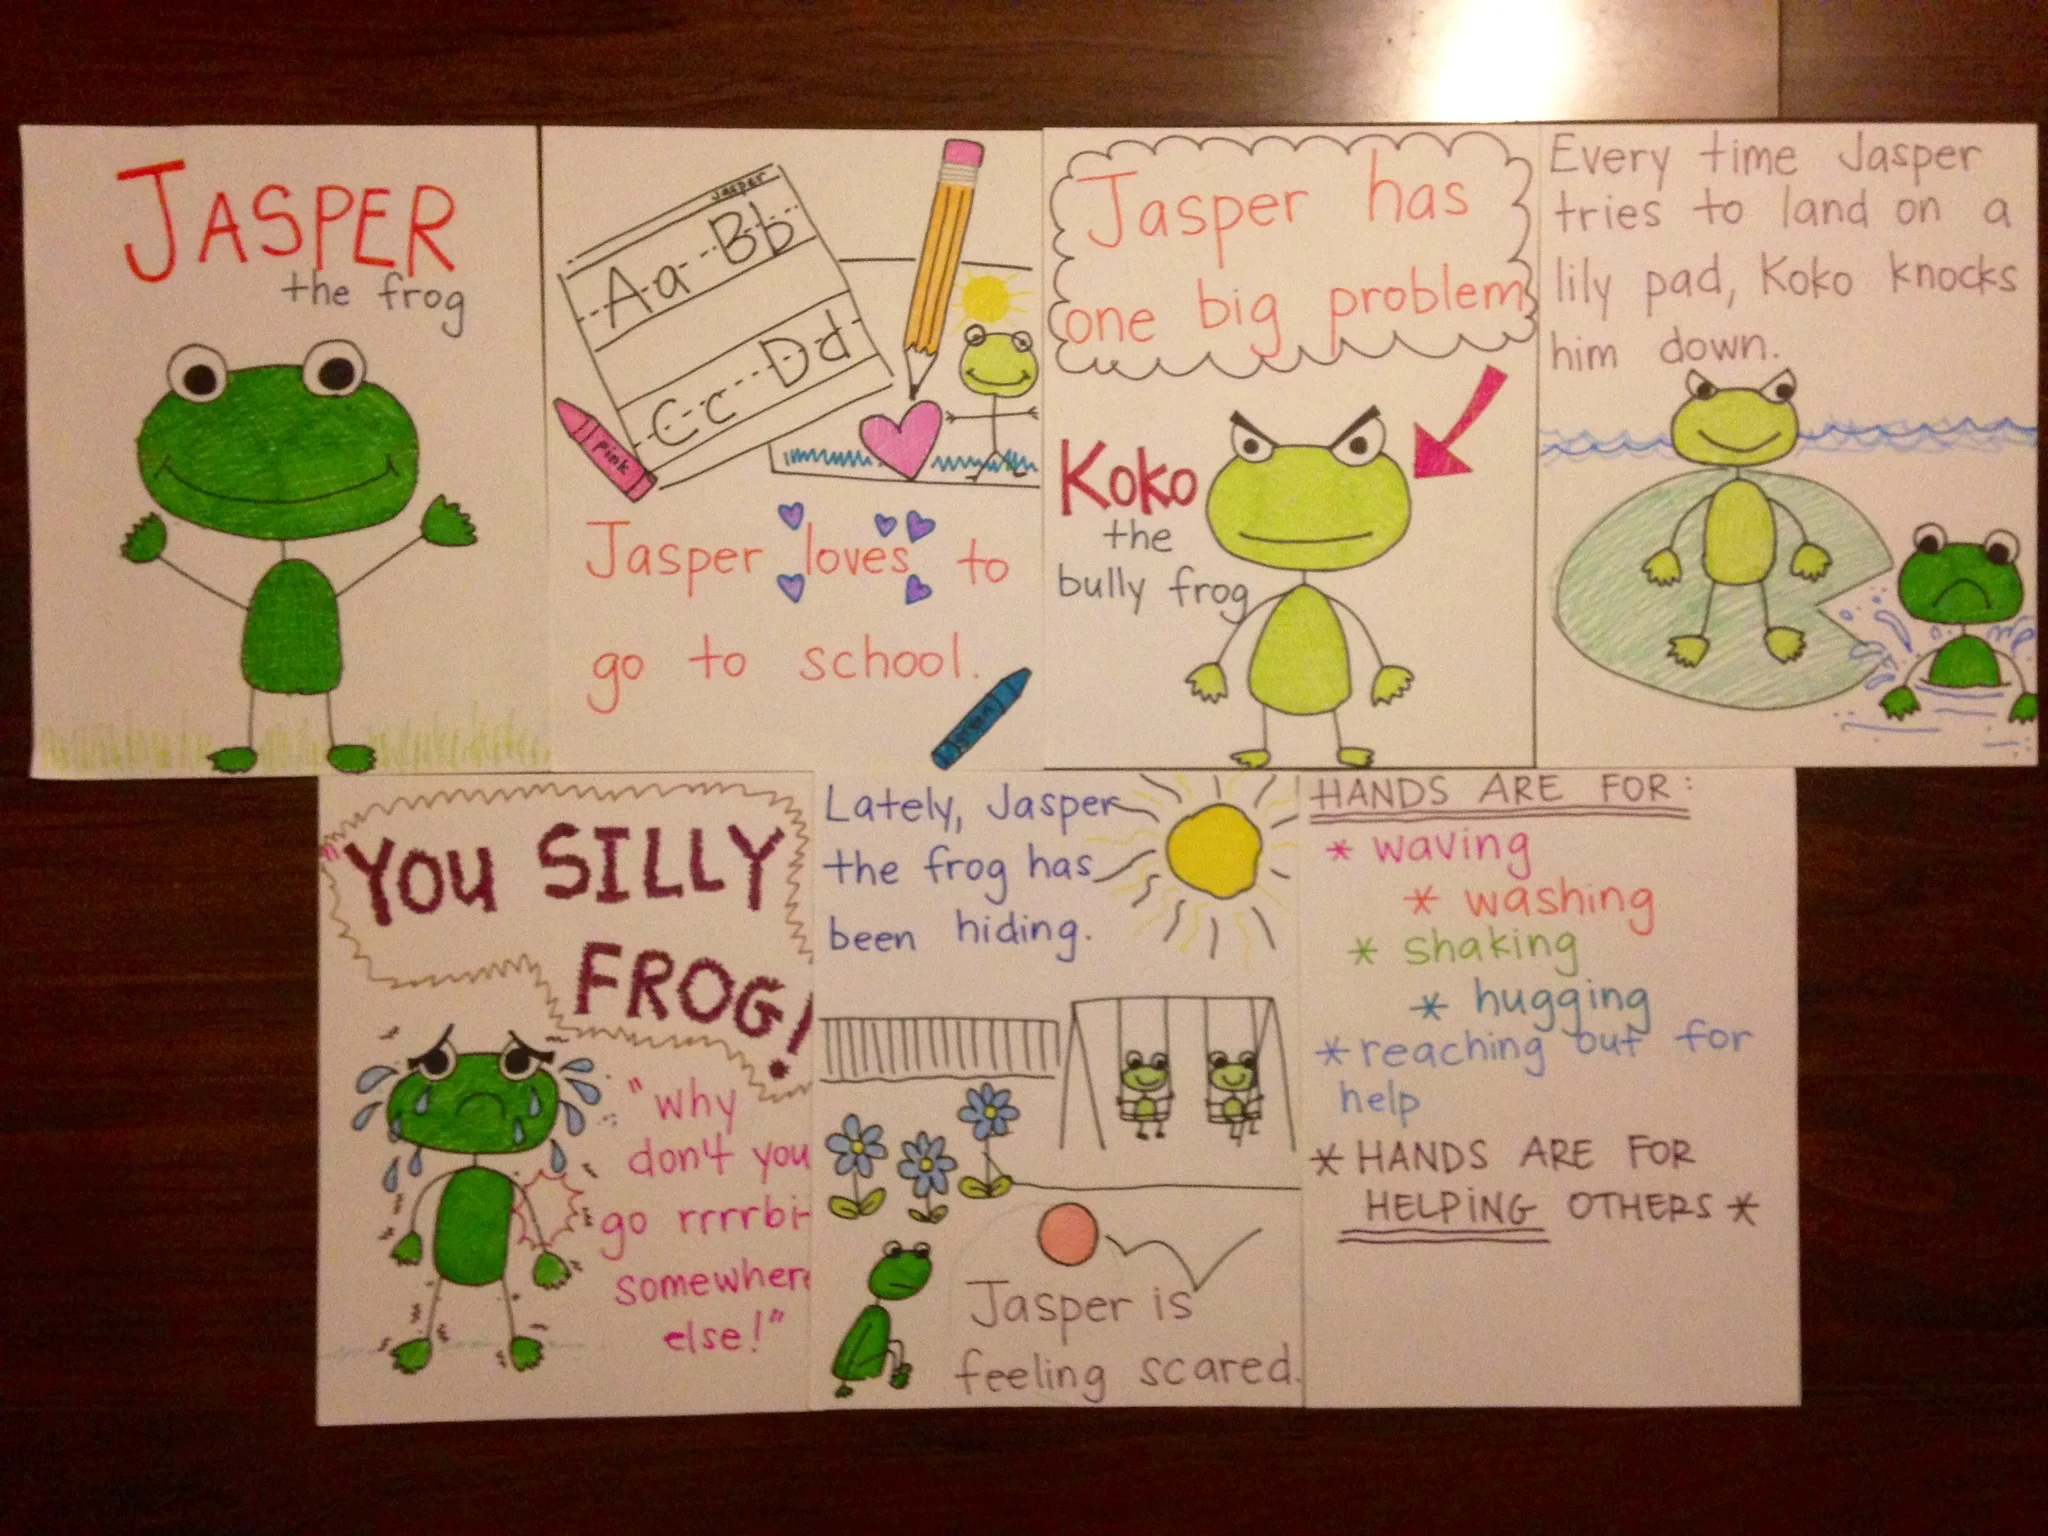 JASPER
the frog
Jasper
Aa Bb
Cc Dd
pink
Jasper loves to
go to school.
green
Jasper has
one big problem
Koko
the
bully frog
Every time Jasper
tries to land on a
lily pad, Koko knocks
him down.
"YOU SILLY
FROG!
"why
don't you
go rrrrbi-
somewhere
else!"
Lately, Jasper
the frog has
been hiding.
Jasper is
feeling scared.
HANDS ARE FOR:
* waving
* washing
* shaking
* hugging
* reaching out for
help
* HANDS ARE FOR
HELPING OTHERS *